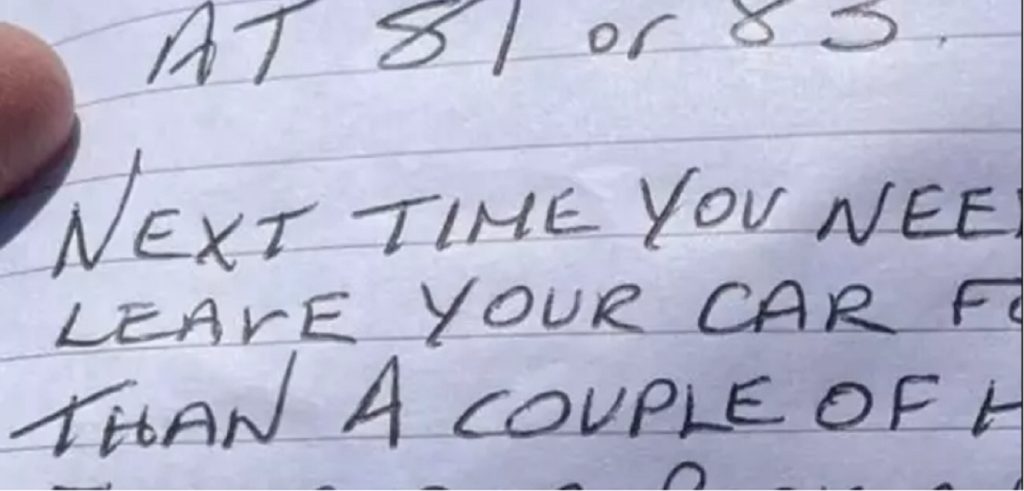 AT 81 or 83.
NEXT TIME YOU NEE
LEAVE YOUR CAR FO
THAN A COUPLE OF H